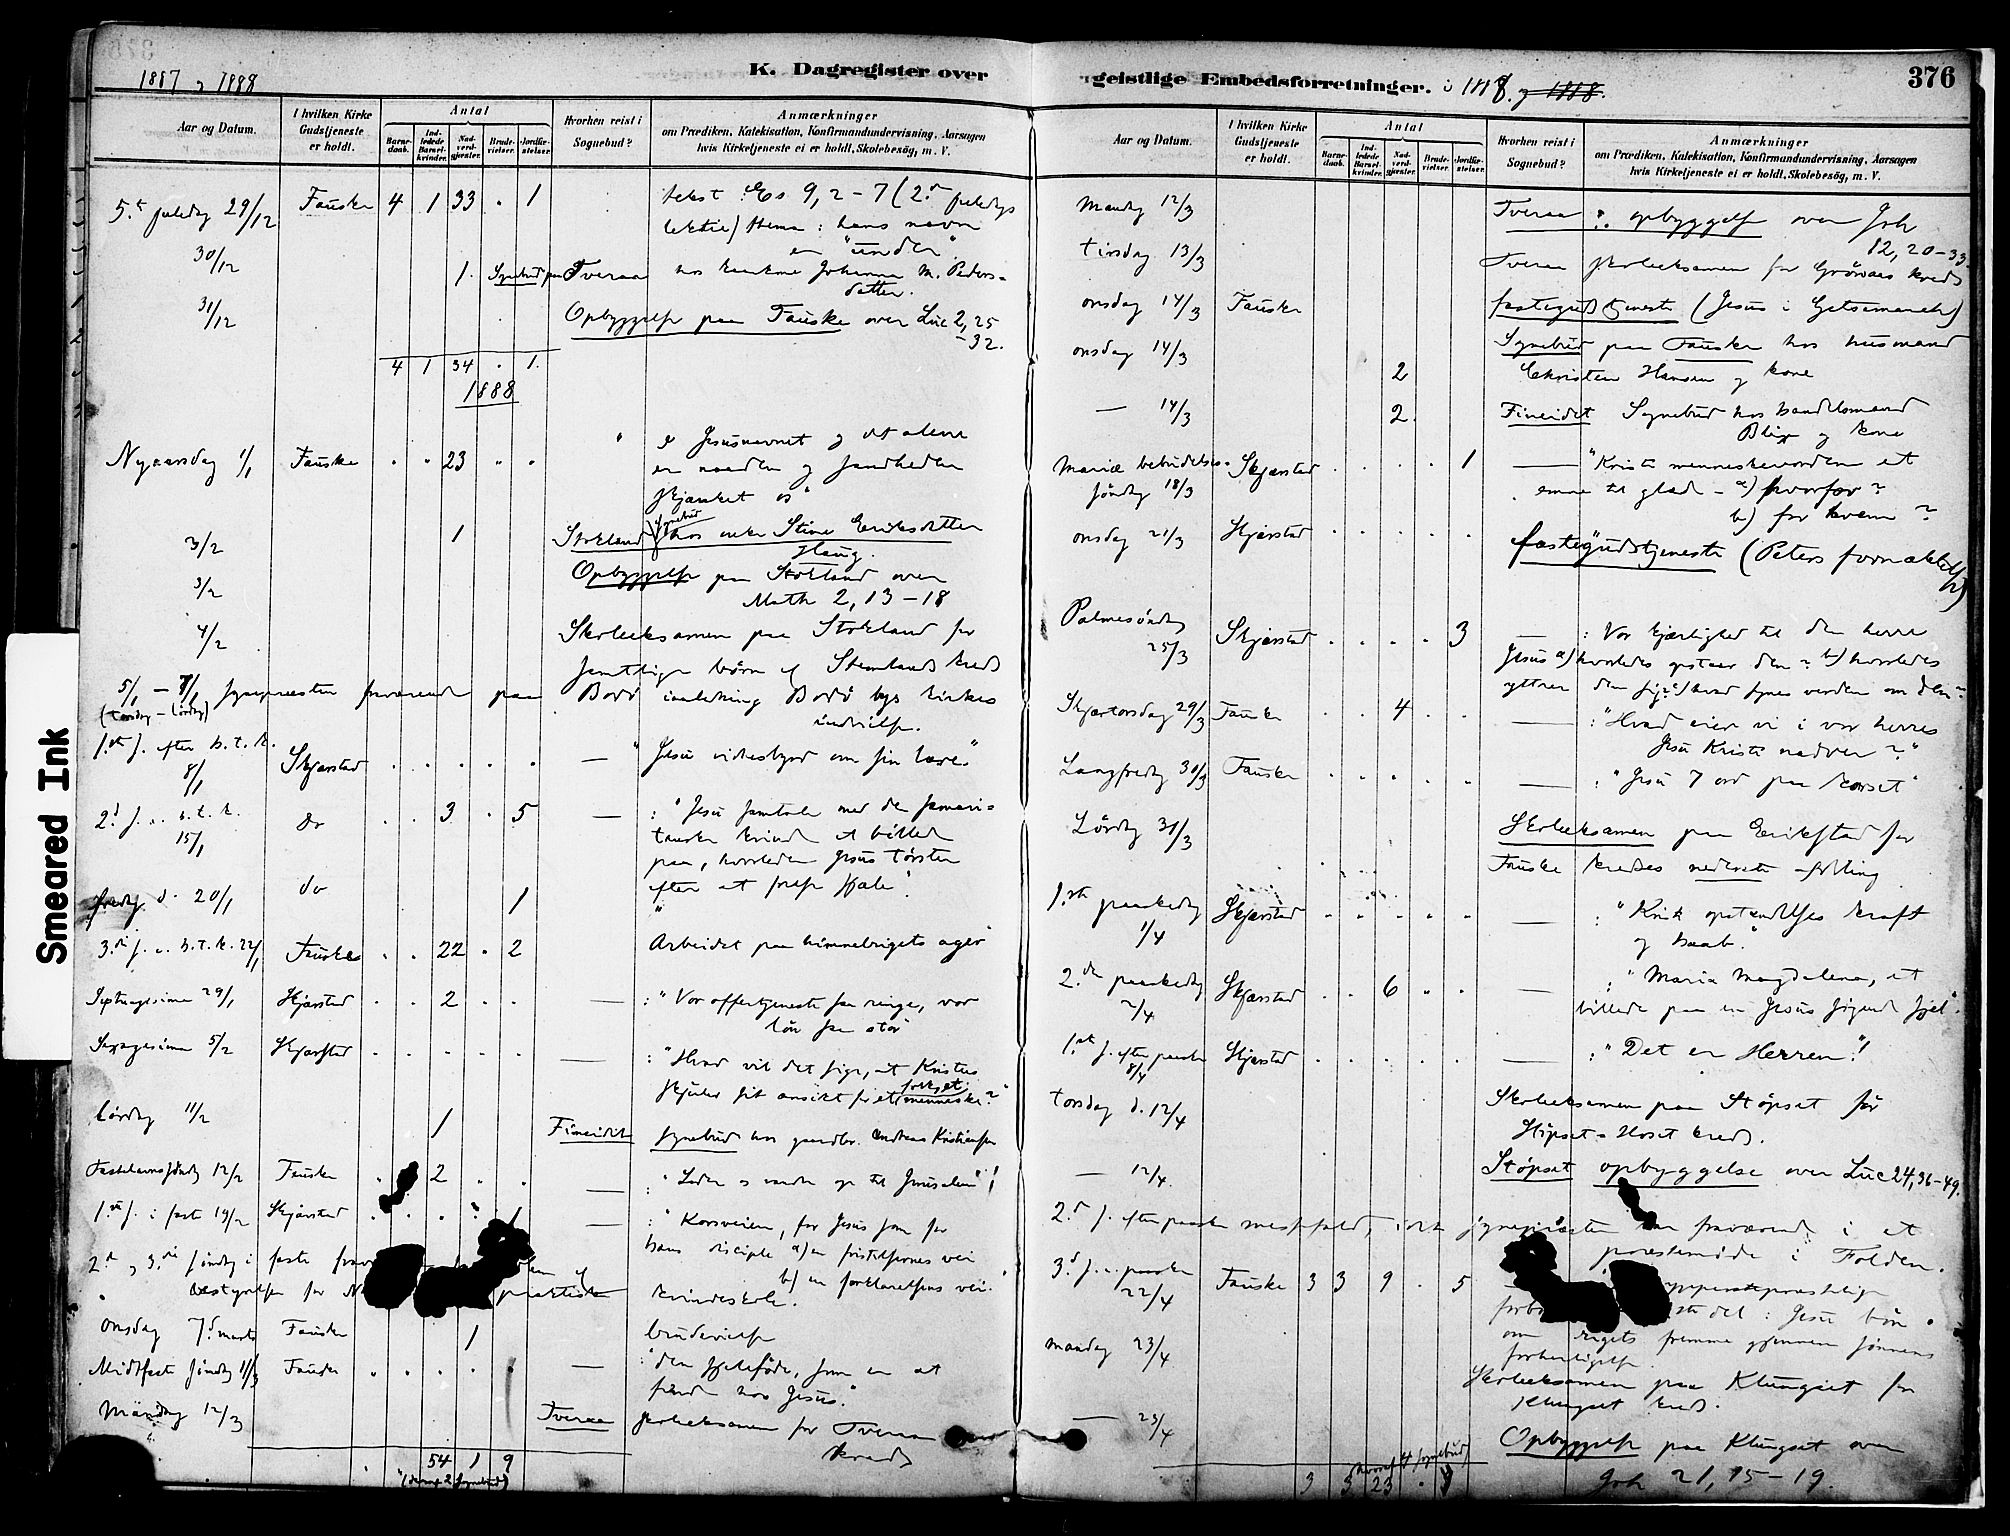 376
1887 og 1888
K. Dagregister over
Aar og Datum.
I hvilken Kirke Gudstjeneste er holdt.
Antal
Barne-daab.
Ind-ledede Barsel-kvinder.
Nad-verd-gjester.
Brude-vielser.
Jordfæ-stelser.
Hvorhen reist i Sognebud?
Anmærkninger
om Prædiken, Katekisation, Konfirmandundervisning, Aarsagen
hvis Kirketjeneste ei er holdt, Skolebesög, m. V.
5.t juledag 29/12 Fauske 4 1 33 . 1 tekst: Es 9, 2-7 (2.d juledags
lektie) thema: hans navn
er "under"
30/12 1. Sognebud paa Tveraa hos Johanna M. Peders-
datter.
31/12 Opbyggelse paa Fauske over Luc 2, 25
-32.
4 1 34 . 1.
1888
Nyaarsdag 1/1 Fauske . . 23 . . " I Jesusnavnet og det alene
er naaden og sandheden
skjænket os"
3/2 1 Stokland Sognebud hos enke Stine Eriksdatter
Haug.
3/2 Opbyggelse paa Stokland over
Math 2, 13-18
4/2 Skoleeksamen paa Stokland for
samtlige børn af Stemlands kreds
5/1 - 7/1 sognepresten fraværende paa Bodø i anledning Bodø bys kirkes
(torsdag - lørdag) indvielse.
1.st s. efter h.t.k.
8/1 Skjærstad . . . . . — "Jesu vidnesbyrd om sin lære"
2.d s. e. h.t.k.
15/1 do . . 3 . 5 — : "Jesu samtale med den samari-
tanske kvinde et billede
paa, hvorledes Jesus tørster
efter at frelse sjæle".
fredag d. 20/1 do 1 "
3.die s. e. h.t.k. 22/1 Fauske . . 22 . 2 Arbeidet paa himmerigets ager"
Septuagesima 29/1 Skjærstad . . 2 . . — : "Vor offertjeneste saa ringe, vor
løn saa stor"
Sexagesima 5/2 Skjærstad . . . . . — : "Hvad vil det sige, at Kristus
skjuler sit ansigt for et folk, et menneske?"
Lørdag 11/2 1 Fineidet sognebud hos gaardbr. Andreas Kristiansen
Fastelavnssøndag 12/2 Fauske . 2 . . — : "Leder os vandre op til Jerusalem"!
1.ste s. i faste 19/2 Skjærstad . . . . 1 — : "Korsveien, for Jesus som for
hans disciple a) en fristelsernes vei
b) en forklarelsens vei.
2.d og 3.die søndag i faste
bestyrelsen for praktiske kvindeskole.
Onsdag 7.d marts Fauske 1 brudevielse
Midtfaste søndag 11/3 Fauske . . . . . — : "den sjeleføde, som er at
finde hos Jesus."
Mandag 12/3 Tveraa skoleeksamen for Tveraa
kreds
54 1 9
(deraf 2 sognebud)
geistlige Embedsforretninger. i 1888. og 1888.
376
Aar og Datum.
I hvilken Kirke Gudstjeneste er holdt.
Antal
Barne-daab.
Ind-ledede Barsel-kvinder.
Nad-verd-gjester.
Brude-vielser.
Jordfæ-stelser.
Hvorhen reist i Sognebud?
Anmærkninger
om Prædiken, Katekisation, Konfirmandundervisning, Aarsagen
hvis Kirketjeneste ei er holdt, Skolebesög, m. V.
Mandag 12/3 Tveraa : opbyggelse over Joh
12, 20-33.
tirsdag 13/3 Tveraa skoleeksamen for Grønaas kreds
onsdag 14/3 Fauske fastegudstjeneste (Jesus i Getsemaneh)
onsdag 14/3 2 Sognebud paa Fauske hos husmand
Christen Hansen og kone
— 14/3 2. Fineidet Sognebud hos handelsmand
Blix og kone
Mariæ bebudelses-
søndag 18/3 Skjærstad . . . . 1 — "Kristi menneskevorden et
emne til glæde - a) hvorfor?
b) for hvem?
onsdag 21/3 Skjærstad . . . . . fastegudstjeneste (Peters fornækkelse)
Palmesøndag
25/3 Skjærstad . . . . 3 — : Vor kjærlighed til den herre
Jesus a) hvorledes opstaar den? b) hvorledes
yttrer den sig? c) hvad synes verden om den?
Skjærtorsdag 29/3 Fauske . . 4 . . — : "Hvad eier vi i vor herres
Jesu Kristi nadver?"
Langfredag 30/3 Fauske . . . . . — : "Jesu 7 ord paa korset"
Lørdag 31/3 Skoleeksamen paa Erikstad for
Fauske kredses nederste afdeling
1.ste paaskedag
1/4 Skjærstad . . . . . — : "Kristi opstandelses kraft
og haab."
2.den paaskedag
2/4 Skjærstad . . 6 . . — : "Maria Magdalena, et
billede paa en Jesus søgende sjel".
1.ste s. efter paaske
8/4 Skjærstad . . . . . — : "Det er Herren"!
torsdag d. 12/4 Skoleeksamen paa Støpset for
Støpset-Hoset kreds.
— 12/4. Støpset opbyggelse over Luc 24, 36-49.
2.d s. efter paaske messefald, idet sognepræsten var fraværende i et
prestemøde i Folden.
3.d s. e. paaske
22/4 Fauske 3 3 9 . 5 ypperstepræstelige
del: Jesu bøn
om rigets fremme gjennem sønnens
forherligelse.
mandag 23/4 Skoleeksamen paa Klungset for
Klungset kreds.
— 23/4 Opbyggelse paa Klungset over
Joh 21, 15-19.
hvoraf 4 sognebud
3 3 23 . 9
Smeared Ink